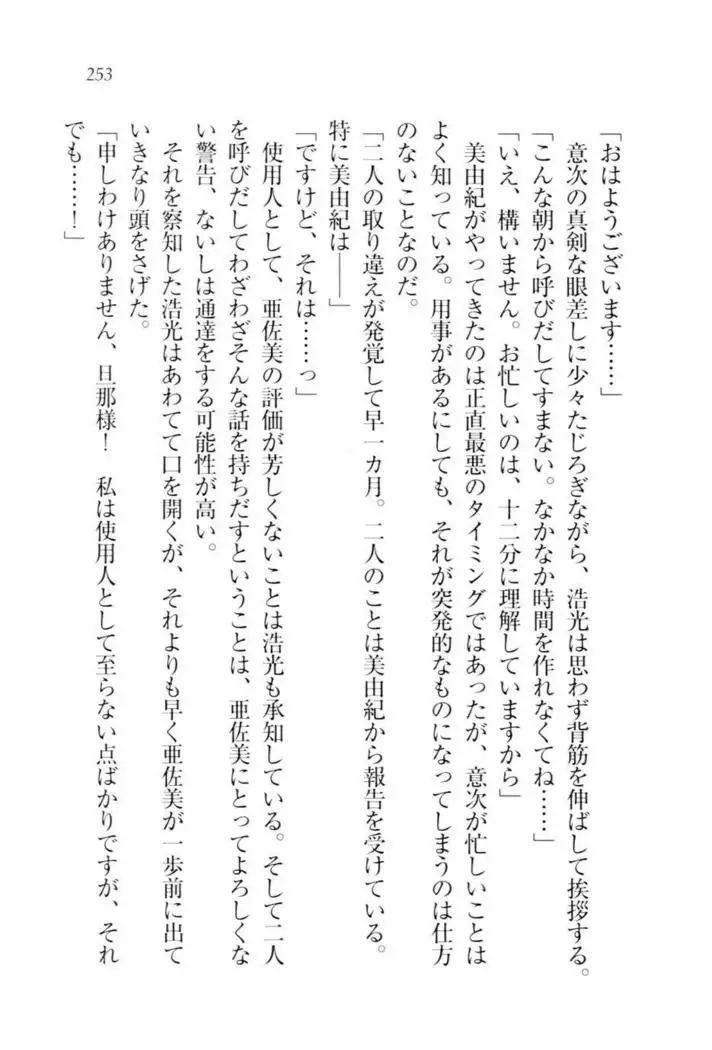 253
「おはようございます……」
意次の真剣な眼差しに少々たじろぎながら、浩光は思わず背筋を伸ばして挨拶する。
「こんな朝から呼びだしてすまない。なかなか時間を作れなくてね……」
「いえ、構いません。お忙しいのは、十二分に理解していますから」
美由紀がやってきたのは正直最悪のタイミングではあったが、意次が忙しいことは
よく知っている。用事があるにしても、それが突発的なものになってしまうのは仕方
のないことなのだ。
「二人の取り違えが発覚して早一カ月。二人のことは美由紀から報告を受けている。
特に美由紀は――」
「ですけど、それは……っ」
使用人として、亜佐美の評価が芳しくないことは浩光も承知している。そして二人
を呼びだしてわざわざそんな話を持ちだすということは、亜佐美にとってよろしくな
い警告、ないしは通達をする可能性が高い。
それを察知した浩光はあわてて口を開くが、それよりも早く亜佐美が一歩前に出て
いきなり頭をさげた。
「申しわけありません、旦那様！　私は使用人として至らない点ばかりですが、それ
でも……！」